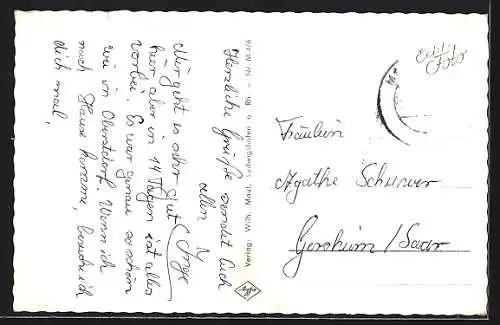 Herzliche Grüße sendet Euch
allen
Inge
Mir geht es sehr gut
hier aber in 14 Tagen ist alles
vorbei. Es war genau so schön
wie in Oberstdorf. Wenn ich
nach Hause komme, besuche ich
dich mal.
Verlag Wilh. Ludwigshafen a. Rh. – Nr. M 4/6
Agfa
Echt
Foto
Fräulein
Agathe Schurer
Gersheim / Saar